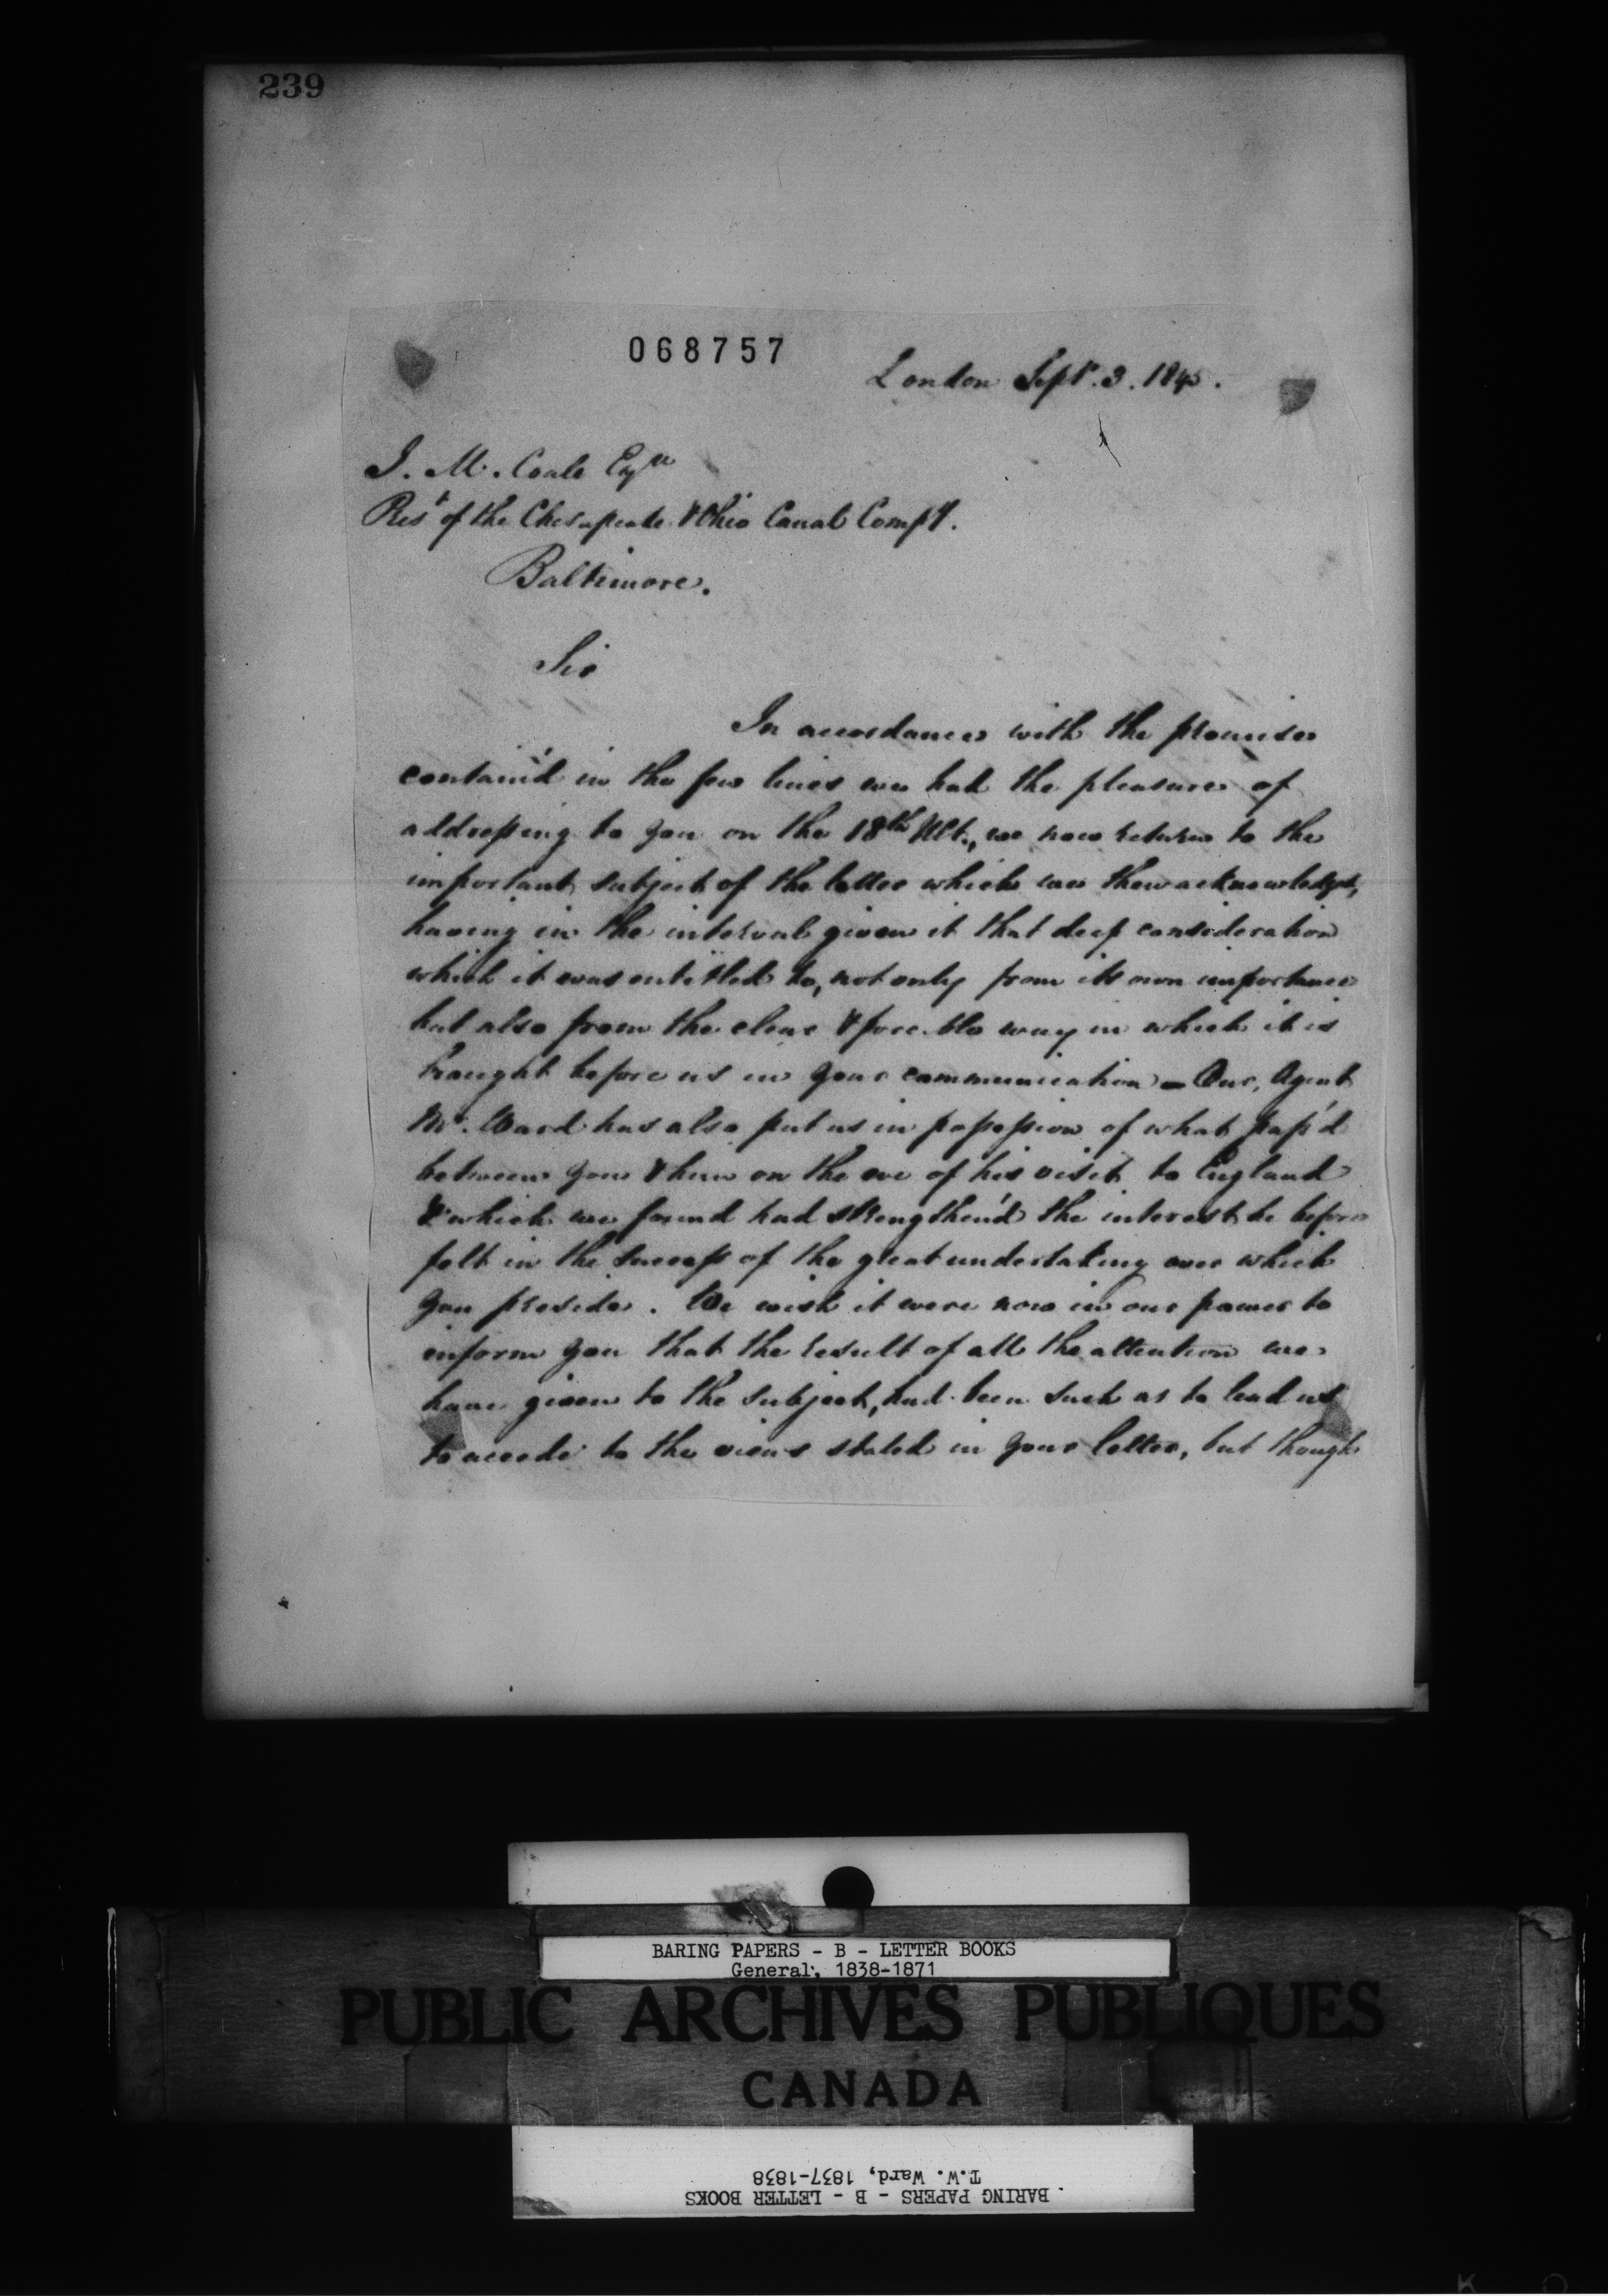 239
068757
London Sept. 3. 1845.
J. M. Coale Esqre
Prest of the Chesapeake & Ohio Canal Compy.
Baltimore.
Sir
In accordance with the promise
contain'd in the few lines we had the pleasure of
addressing to you on the 18th Ult., we now return to the
important subject of the letter which we then acknowledged,
having in the interval given it that deep consideration
which it was entitled to, not only from its own importance
but also from the clear & forcible way in which it is
brought before us in your communication – Our Agent
Mr. Ward has also put us in possession of what pass'd
between you & him on the eve of his visit to England
& which we found had strengthen'd the interest he before
felt in the success of the great undertaking over which
you preside. We wish it were now in our power to
inform you that the result of all the attention we
have given to the subject, had been such as to lead us
to accede to the views stated in your letter, but though
BARING PAPERS - B - LETTER BOOKS
General, 1838-1871
PUBLIC ARCHIVES PUBLIQUES
CANADA
BARING PAPERS - B - LETTER BOOKS
T.W. Ward, 1837-1838